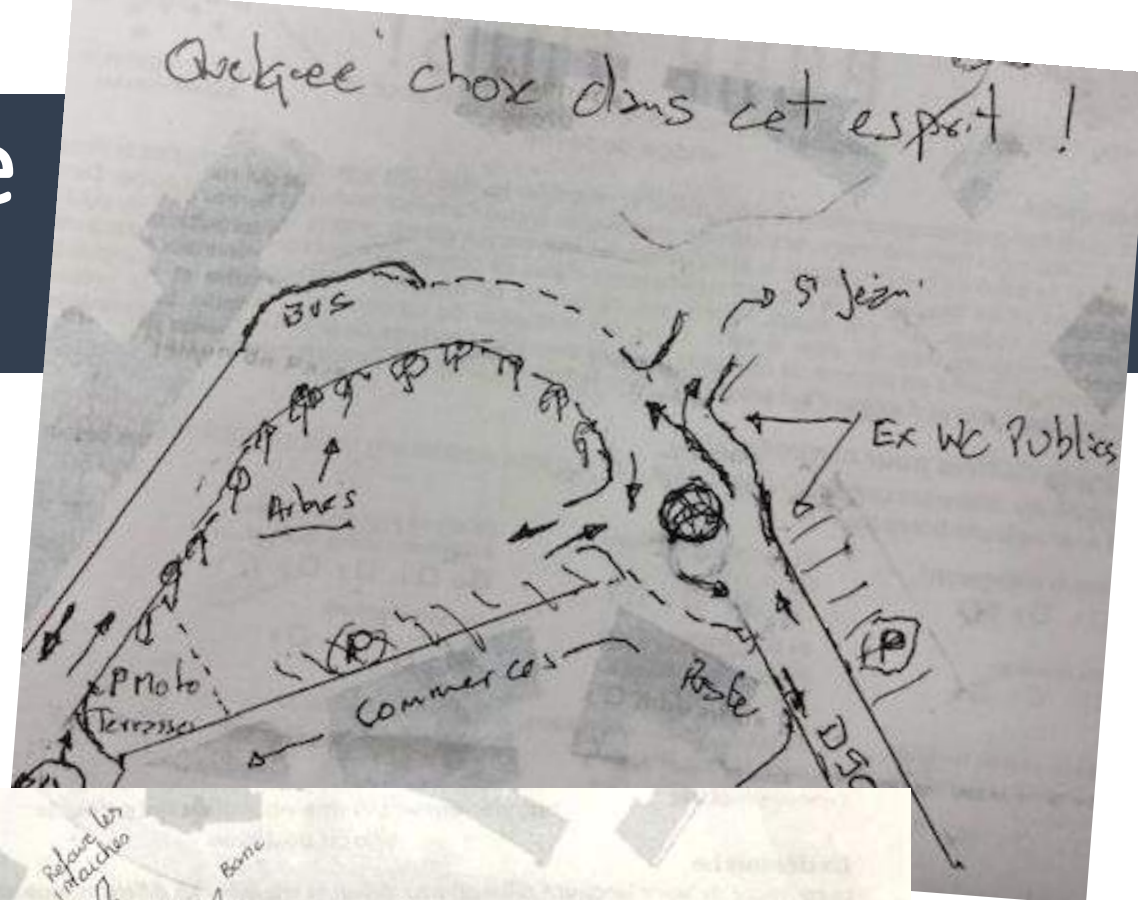 e
Quelquee chose dans cet esprit !
St Jean
BUS
Ex WC Publics
Arbres
P
P
P Moto
Terrasse
Commerces
Poste
Refaire les
marches
Banc